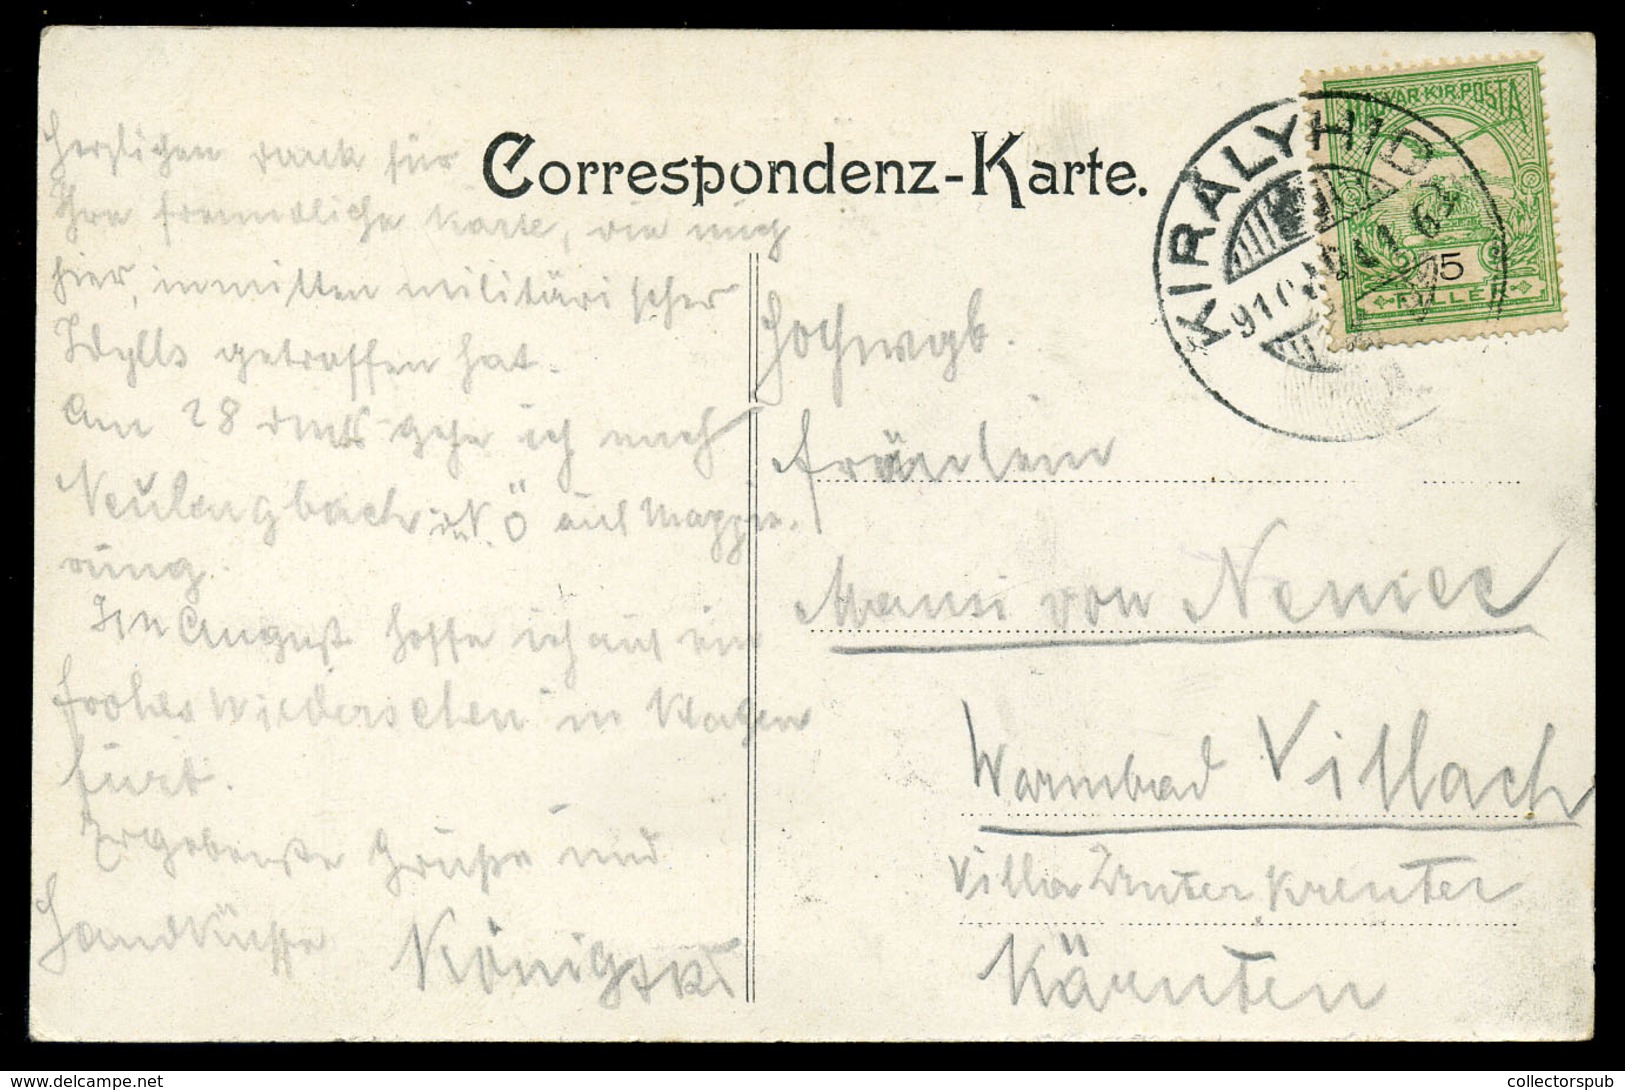 Correspondenz-Karte.
MAGYAR KIR. POSTA
5
FILLÉR
KIRÁLYHID
Herzlichen Dank für
Ihre freundliche Karte, die mich
hier, inmitten militärischer
Idylls getroffen hat.
Am 28 dmts gehe ich nach
Neulengbach in N. Ö auf Mappie-
rung.
Im August hoffe ich auf ein
frohes Wiedersehen in Klagen
furt.
Ergebenste Grüße und
Handküsse
Hochwgb.
Fräulein
von
Warmbad Villach
Villa Unterkreuter
Kärnten
collectorspub